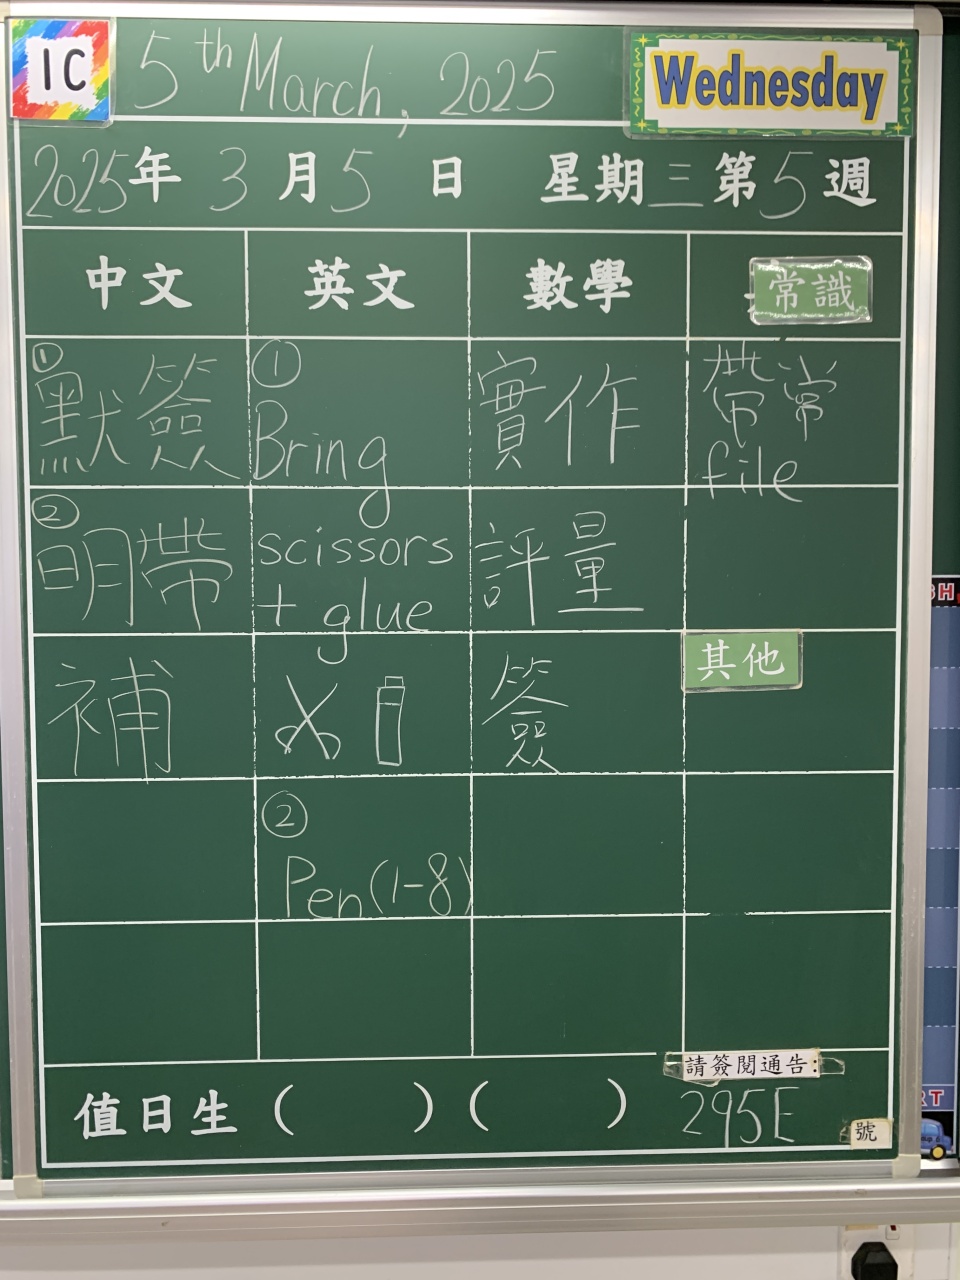 1C
5th March, 2025
Wednesday
2025年 3月5日 星期三第5週
中文
英文
數學
常識
①
默簽
②
明帶
補
①
Bring
scissors
+ glue
②
Pen(1-8)
實作
評量
簽
帶常
file
其他
值日生 ( ) ( )
請簽閱通告:
295E
號